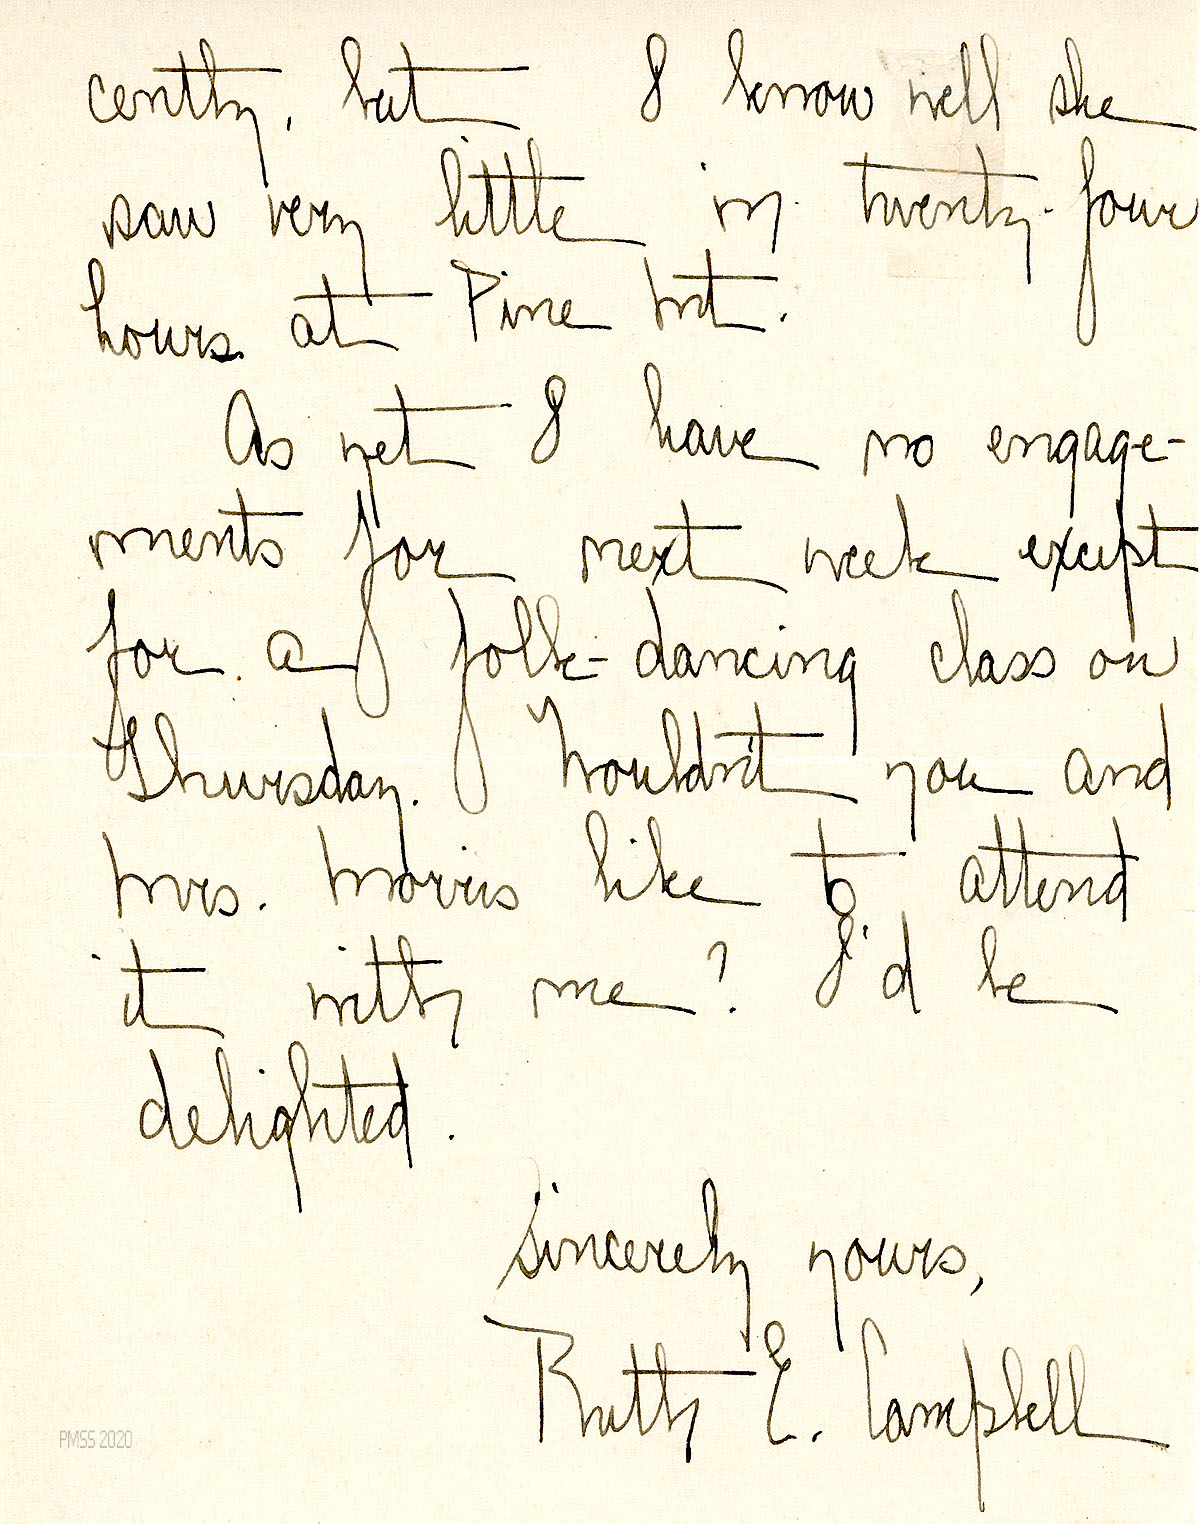 cently, but I know well she
saw very little in twenty-four
hours at Pine Mt.
As yet I have no engage-
ments for next week except
for a folk-dancing class on
Thursday. Wouldn't you and
Mrs. Morris like to attend
it with me? I'd be
delighted.
Sincerely yours,
Ruth E. Campbell
PMSS 2020